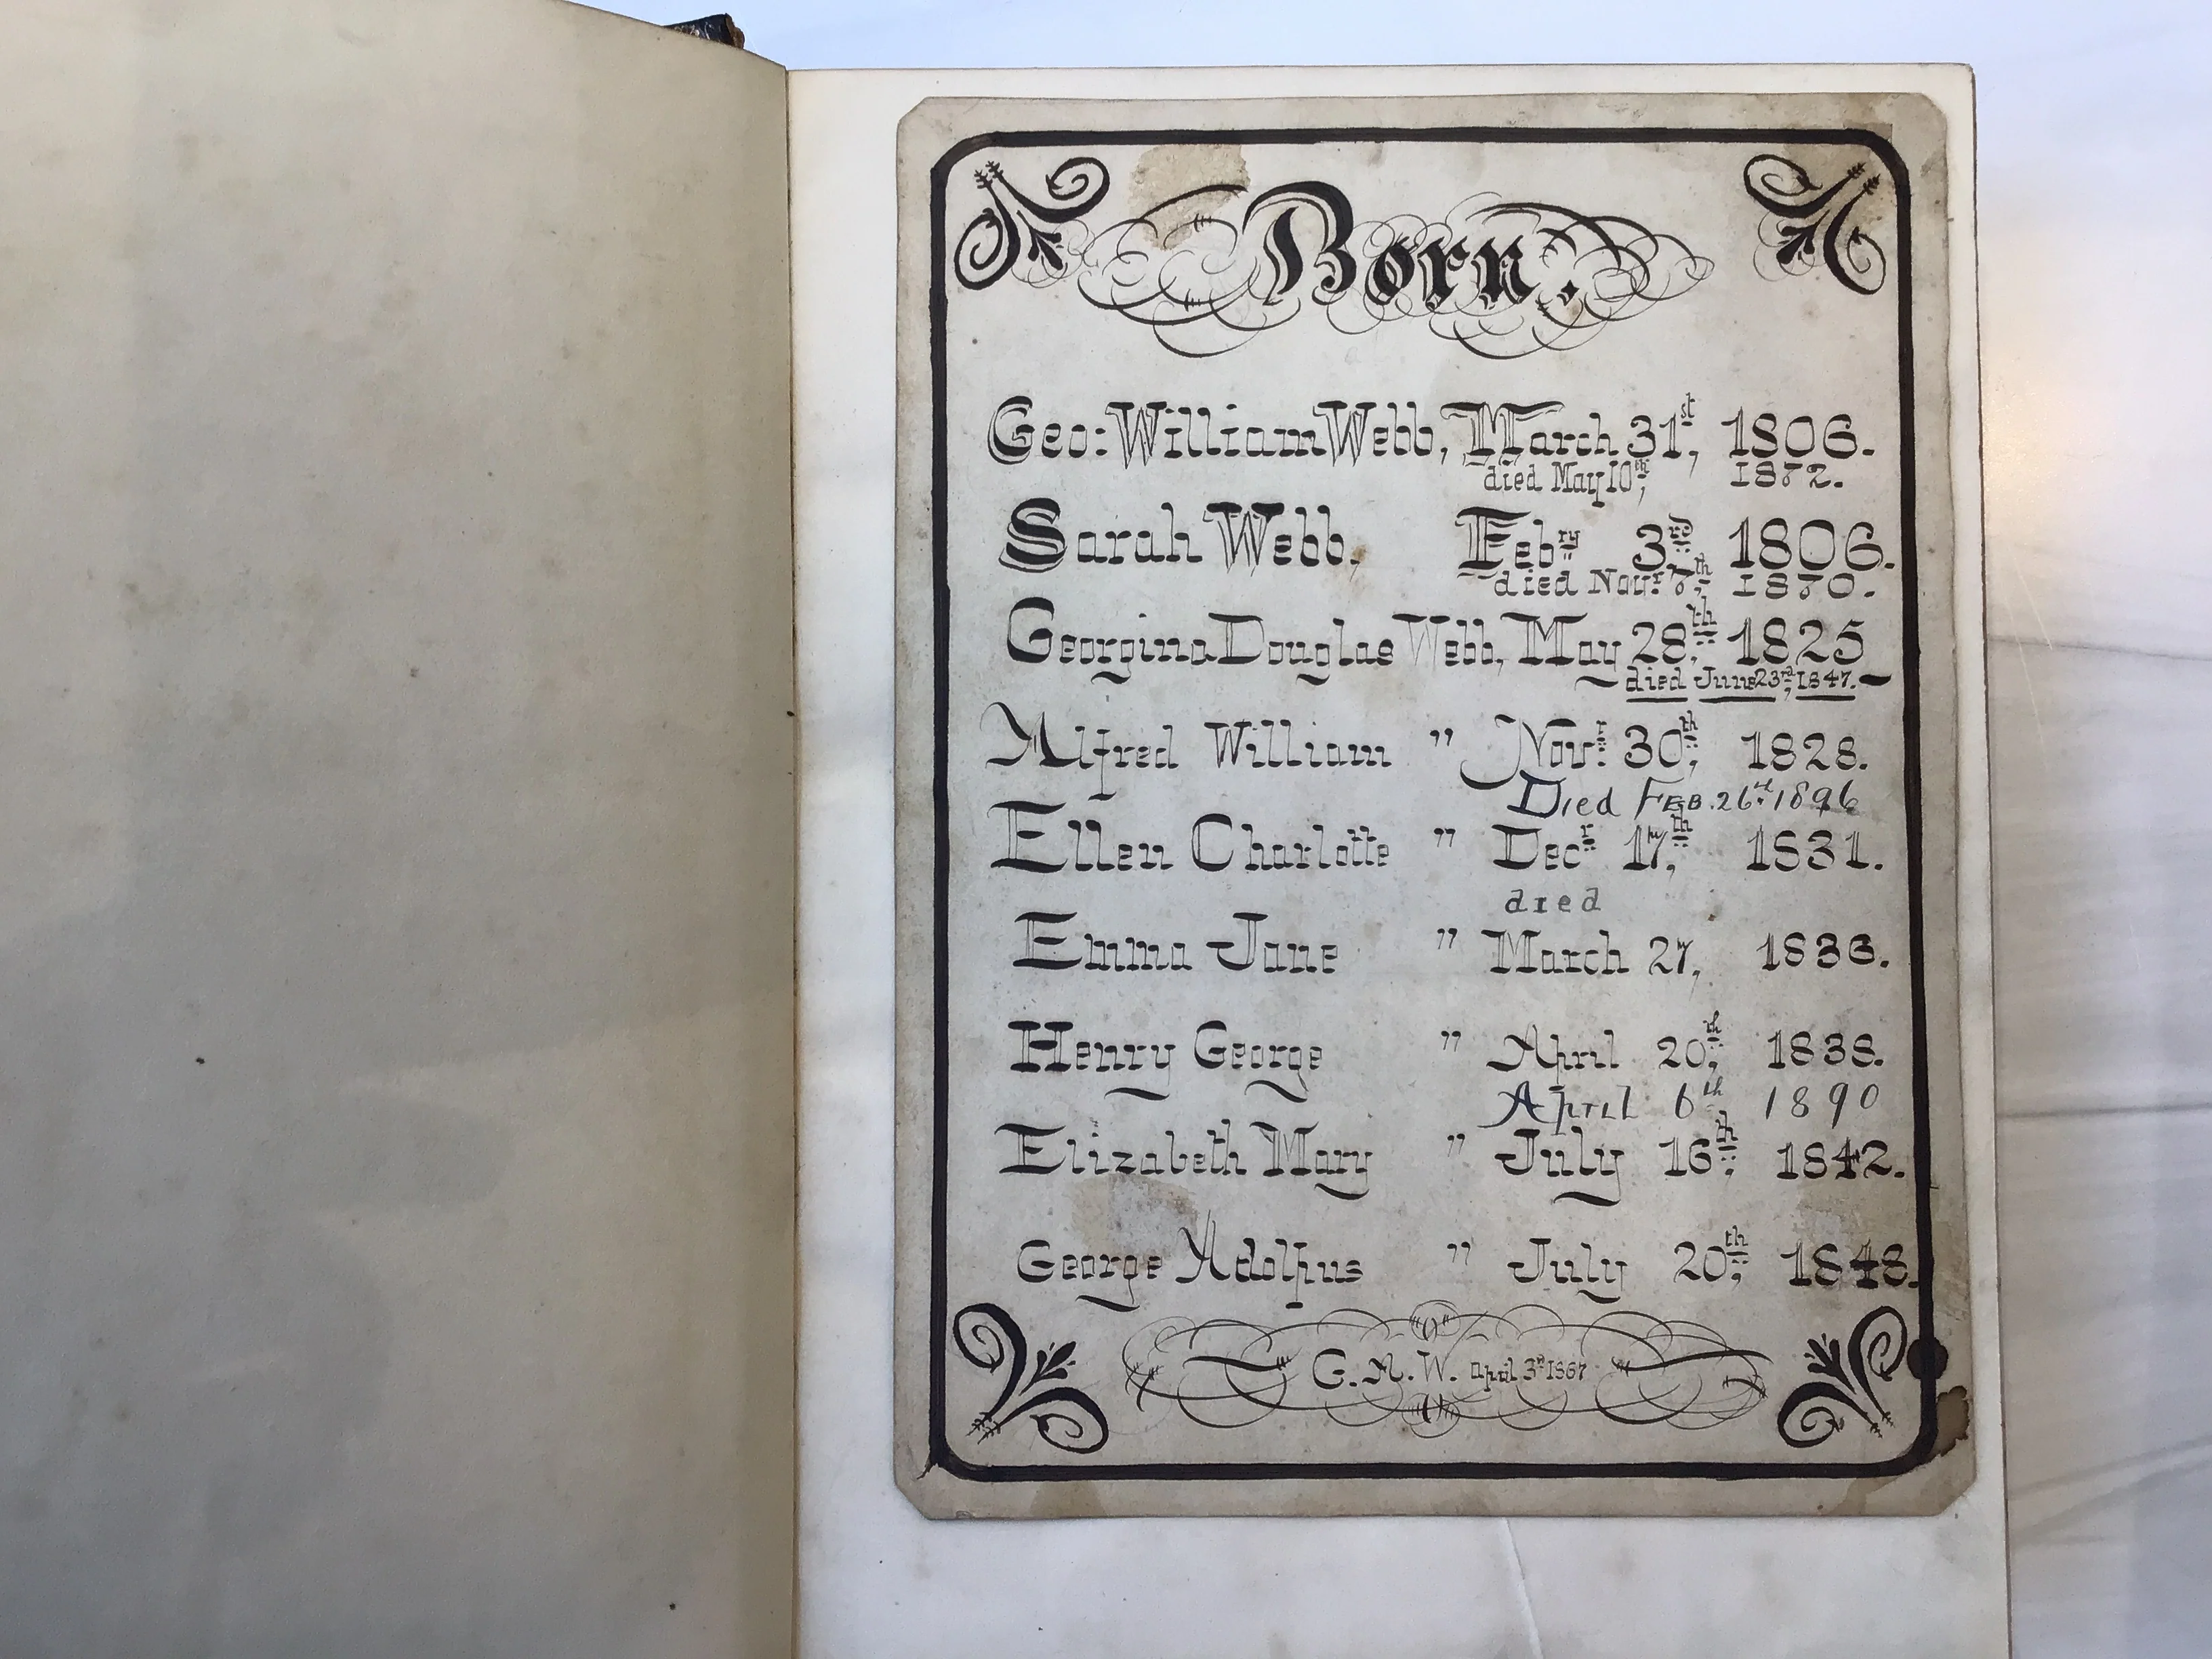 Born.
Geo: William Webb, March 31st, 1806.
died May 10th, 1872.
Sarah Webb, Febry 3rd, 1806.
died Novr. 7th, 1870.
Georgina Douglas Webb, May 28th, 1825
died June 23rd, 1847.
Alfred William " Novr. 30th, 1828.
Died FEB. 26th 1896
Ellen Charlotte " Decr 17th, 1831.
died
Emma Jane " March 27, 1836.
Henry George " April 20th, 1838.
April 6th 1890
Elizabeth Mary " July 16th, 1842.
George Adolphus " July 20th, 1848.
G. A. W. April 3rd 1867